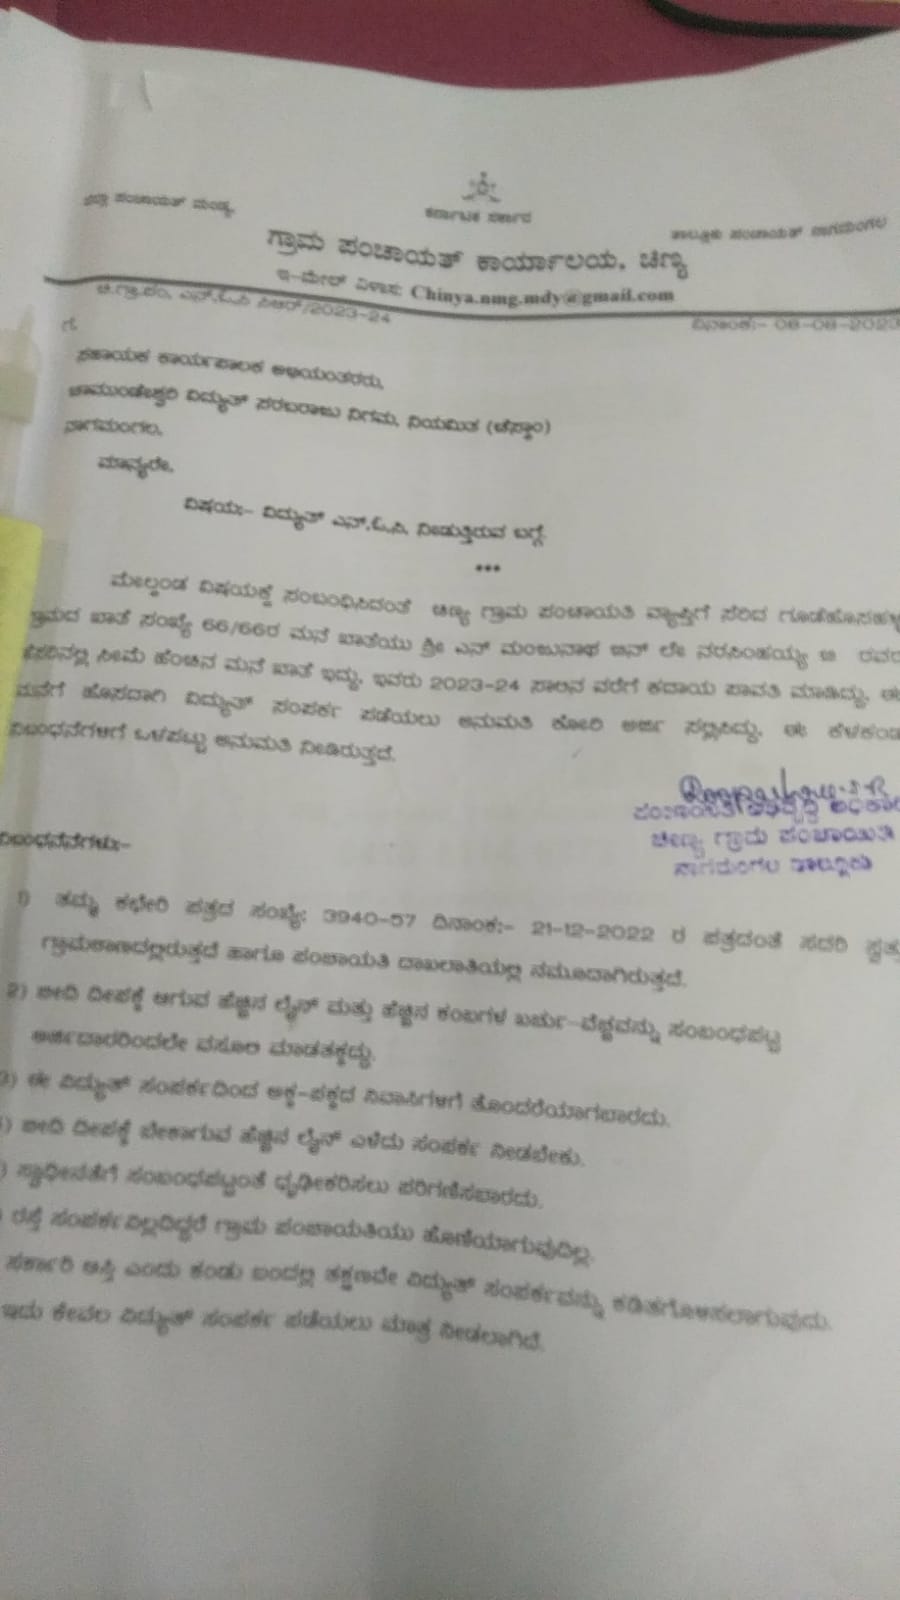 ಜಿಲ್ಲಾ ಪಂಚಾಯತ್ ಮಂಡ್ಯ
ಕರ್ನಾಟಕ ಸರ್ಕಾರ
ತಾಲ್ಲೂಕು ಪಂಚಾಯತ್ ನಾಗಮಂಗಲ
ಗ್ರಾಮ ಪಂಚಾಯತ್ ಕಾರ್ಯಾಲಯ, ಚಿಣ್ಯ
ಇ-ಮೇಲ್ ವಿಳಾಸ: Chinya.nmg.mdy@gmail.com
ಚಿ.ಗ್ರಾ.ಪಂ, ಎನ್.ಓ.ಸಿ ಸಿಆರ್/2023-24
ದಿನಾಂಕ:- 08-08-2023
ಗೆ,
ಸಹಾಯಕ ಕಾರ್ಯಪಾಲಕ ಅಭಿಯಂತರರು,
ಚಾಮುಂಡೇಶ್ವರಿ ವಿದ್ಯುತ್ ಸರಬರಾಜು ನಿಗಮ, ನಿಯಮಿತ (ಚೆಸ್ಕಾಂ)
ನಾಗಮಂಗಲ.
ಮಾನ್ಯರೇ,
ವಿಷಯ:- ವಿದ್ಯುತ್ ಎನ್.ಓ.ಸಿ. ನೀಡುತ್ತಿರುವ ಬಗ್ಗೆ.
***
ಮೇಲ್ಕಂಡ ವಿಷಯಕ್ಕೆ ಸಂಬಂಧಿಸಿದಂತೆ ಚಿಣ್ಯ ಗ್ರಾಮ ಪಂಚಾಯತಿ ವ್ಯಾಪ್ತಿಗೆ ಸೇರಿದ
ಗ್ರಾಮದ ಖಾತೆ ಸಂಖ್ಯೆ 66/66ರ ಮನೆ ಖಾತೆಯು ಶ್ರೀ ಎನ್ ಮಂಜುನಾಥ ಬಿನ್ ಲೇ ನರಸಿಂಹಯ್ಯ ರವರ
ಹೆಸರಿನಲ್ಲಿ ಸೀಮೆ ಹೆಂಚಿನ ಮನೆ ಖಾತೆ ಇದ್ದು, ಇವರು 2023-24 ಸಾಲಿನ ವರೆಗೆ ಕಂದಾಯ ಪಾವತಿ ಮಾಡಿದ್ದು, ಈ
ಮನೆಗೆ ಹೊಸದಾಗಿ ವಿದ್ಯುತ್ ಸಂಪರ್ಕ ಪಡೆಯಲು ಅನುಮತಿ ಕೋರಿ ಅರ್ಜಿ ಸಲ್ಲಿಸಿದ್ದು, ಈ ಕೆಳಕಂಡ
ನಿಬಂಧನೆಗಳಿಗೆ ಒಳಪಟ್ಟು ಅನುಮತಿ ನೀಡಿರುತ್ತದೆ.
ಪಂಚಾಯಿತಿ ಅಭಿವೃದ್ಧಿ ಅಧಿಕಾರಿ
ಚಿಣ್ಯ ಗ್ರಾಮ ಪಂಚಾಯಿತಿ
ನಾಗಮಂಗಲ ತಾಲ್ಲೂಕು
ನಿಬಂಧನೆಗಳು:-
1) ತಮ್ಮ ಕಛೇರಿ ಪತ್ರದ ಸಂಖ್ಯೆ: 3940-57 ದಿನಾಂಕ:- 21-12-2022 ರ ಪತ್ರದಂತೆ ಸದರಿ ಸ್ವತ್ತು
ಗ್ರಾಮಠಾಣದಲ್ಲಿರುತ್ತದೆ ಹಾಗೂ ಪಂಚಾಯತಿ ದಾಖಲಾತಿಯಲ್ಲಿ ನಮೂದಾಗಿರುತ್ತದೆ.
2) ಬೀದಿ ದೀಪಕ್ಕೆ ಆಗುವ ಹೆಚ್ಚಿನ ಲೈನ್ ಮತ್ತು ಹೆಚ್ಚಿನ ಕಂಬಗಳ ಖರ್ಚು-ವೆಚ್ಚವನ್ನು ಸಂಬಂಧಪಟ್ಟ
ಅರ್ಜಿದಾರರಿಂದಲೇ ವಸೂಲಿ ಮಾಡತಕ್ಕದ್ದು.
3) ಈ ವಿದ್ಯುತ್ ಸಂಪರ್ಕದಿಂದ ಅಕ್ಕ-ಪಕ್ಕದ ನಿವಾಸಿಗಳಿಗೆ ತೊಂದರೆಯಾಗಬಾರದು.
) ಬೀದಿ ದೀಪಕ್ಕೆ ಬೇಕಾಗುವ ಹೆಚ್ಚಿನ ಲೈನ್ ಎಳೆದು ಸಂಪರ್ಕ ನೀಡಬೇಕು.
) ಸ್ವಾಧೀನತೆಗೆ ಸಂಬಂಧಪಟ್ಟಂತೆ ಧೃಢೀಕರಿಸಲು ಪರಿಗಣಿಸಬಾರದು.
) ರಸ್ತೆ ಸಂಪರ್ಕವಿಲ್ಲದಿದ್ದರೆ ಗ್ರಾಮ ಪಂಚಾಯತಿಯು ಹೊಣೆಯಾಗುವುದಿಲ್ಲ.
ಸರ್ಕಾರಿ ಆಸ್ತಿ ಎಂದು ಕಂಡು ಬಂದಲ್ಲಿ ತಕ್ಷಣವೇ ವಿದ್ಯುತ್ ಸಂಪರ್ಕವನ್ನು ಕಡಿತಗೊಳಿಸಲಾಗುವುದು.
ಇದು ಕೇವಲ ವಿದ್ಯುತ್ ಸಂಪರ್ಕ ಪಡೆಯಲು ಮಾತ್ರ ನೀಡಲಾಗಿದೆ.